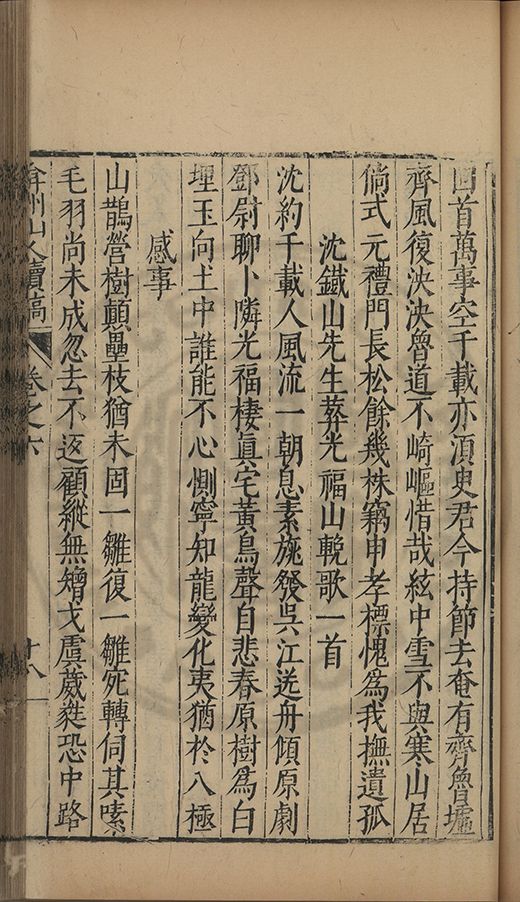 回首萬事空千載亦湏史君今持節去奄有齊魯墟
齊風復泱泱魯道不崎嶇惜哉絃中雪不與寒山居
倘式元禮門長松餘幾株竊申孝標愧為我撫遺孤
沈鐵山先生葬光福山輓歌一首
沈約千載人風流一朝息素旐發吳江送舟傾原劇
鄧尉聊卜隣光福棲真宅黃鳥聲自悲春原樹為白
埋玉向土中誰能不心惻寧知龍變化夷猶於八極
感事
山鵲營樹顛壘枝猶未固一雛復一雛宛轉伺其嗉
毛羽尚未成忽去不返顧縱無矰弋虞葳蕤恐中路
弇州山人續稿 卷之六 十八